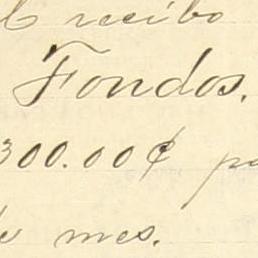 recibo
Fondos.
300.00¢
mes.